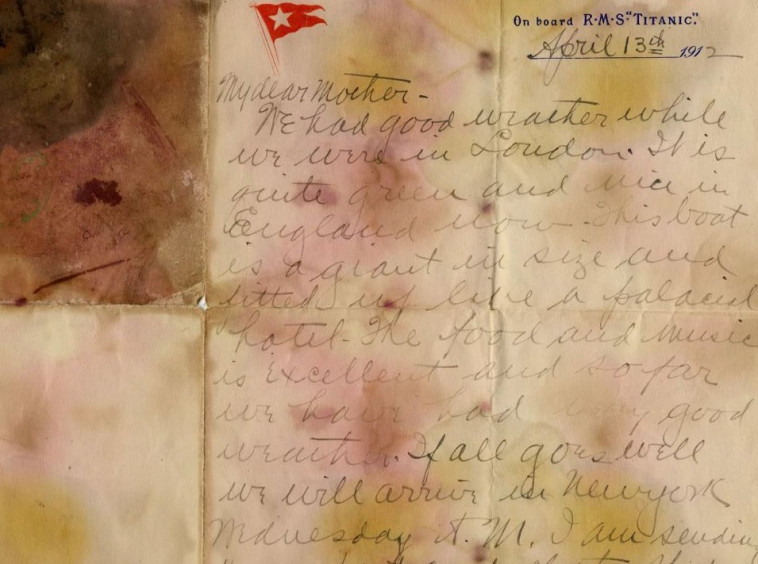 On board R·M·S·"TITANIC".
April 13th 1912
My dear Mother-
We had good weather while
we were in London. It is
quite green and nice in
England now. This boat
is a giant in size and
fitted up like a palacial
hotel. The food and music
is excellent and so far
we have had very good
weather. If all goes well
we will arrive in New york
Wednesday A.M. I am sending